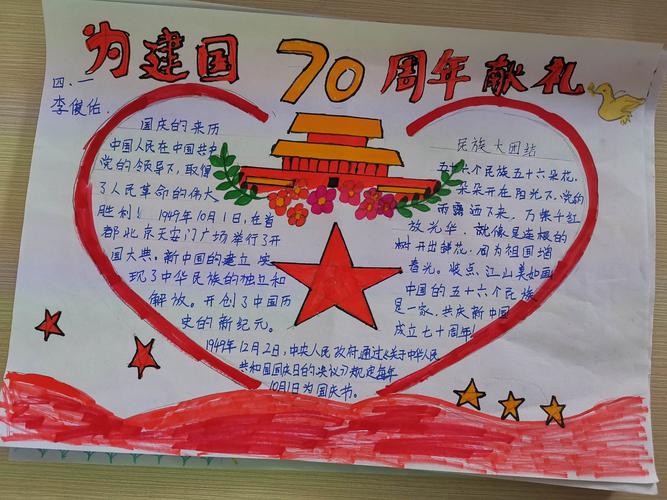 为建国70周年献礼
四、一
李俊佑
国庆的来历
中国人民在中国共中
党的领导下,取得
了人民革命的伟大
胜利!1949年10月1日,在首
都北京天安门广场举行了开
国大典,新中国的建立,实
现了中华民族的独立和
解放。开创了中国历
史的新纪元。
1949年12月2日,中央人民政府通过《关于中华人民
共和国国庆日的决议》规定每年
10月1日为国庆节。
民族大团结
五十六个民族五十六朵花,
朵朵开在阳光下,党的
雨露洒下来,万紫千红
放光华,就像是连根的
树开出鲜花,同为祖国增
春光。装点,江山美如画
中国的五十六个民族
是一家,共庆新中国
成立七十周年!